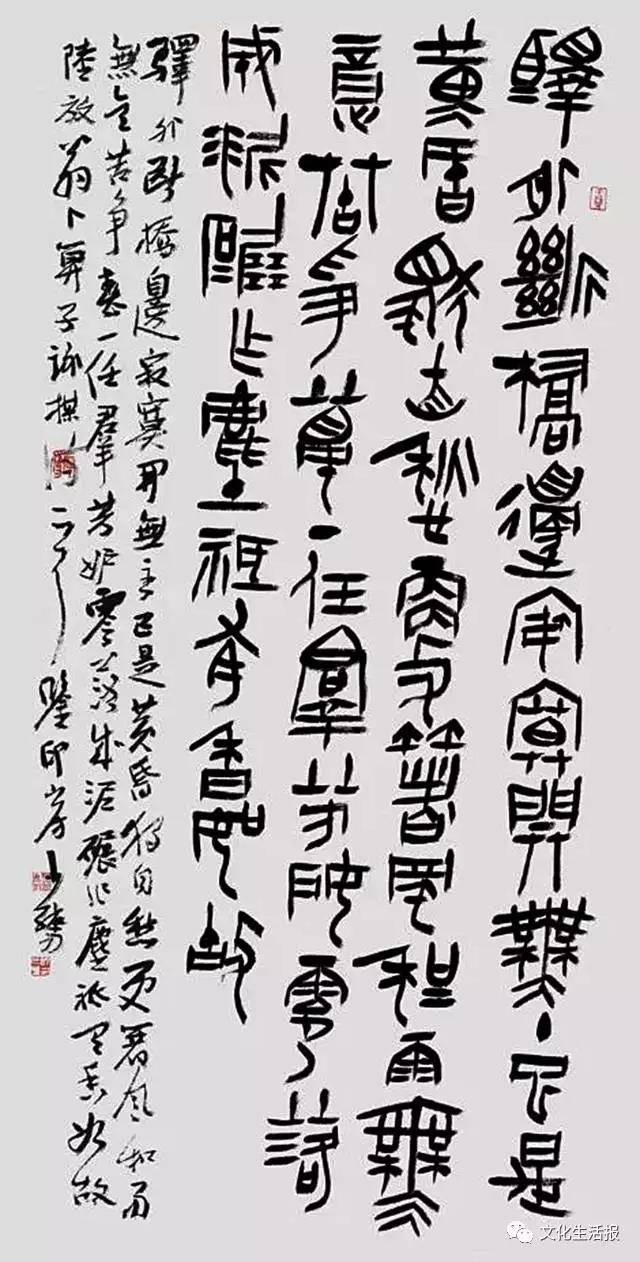 驛外斷橋邊寂寞開無主已是
黃昏獨自愁更著風和雨無
意苦爭春一任羣芳妒零落
成泥碾作塵祇有香如故
驛外斷橋邊寂寞開無主已是黃昏獨自愁更著風和雨
無意苦爭春一任羣芳妒零落成泥碾作塵祇有香如故
陸放翁卜算子詠楳 鑒印山房
文化生活报